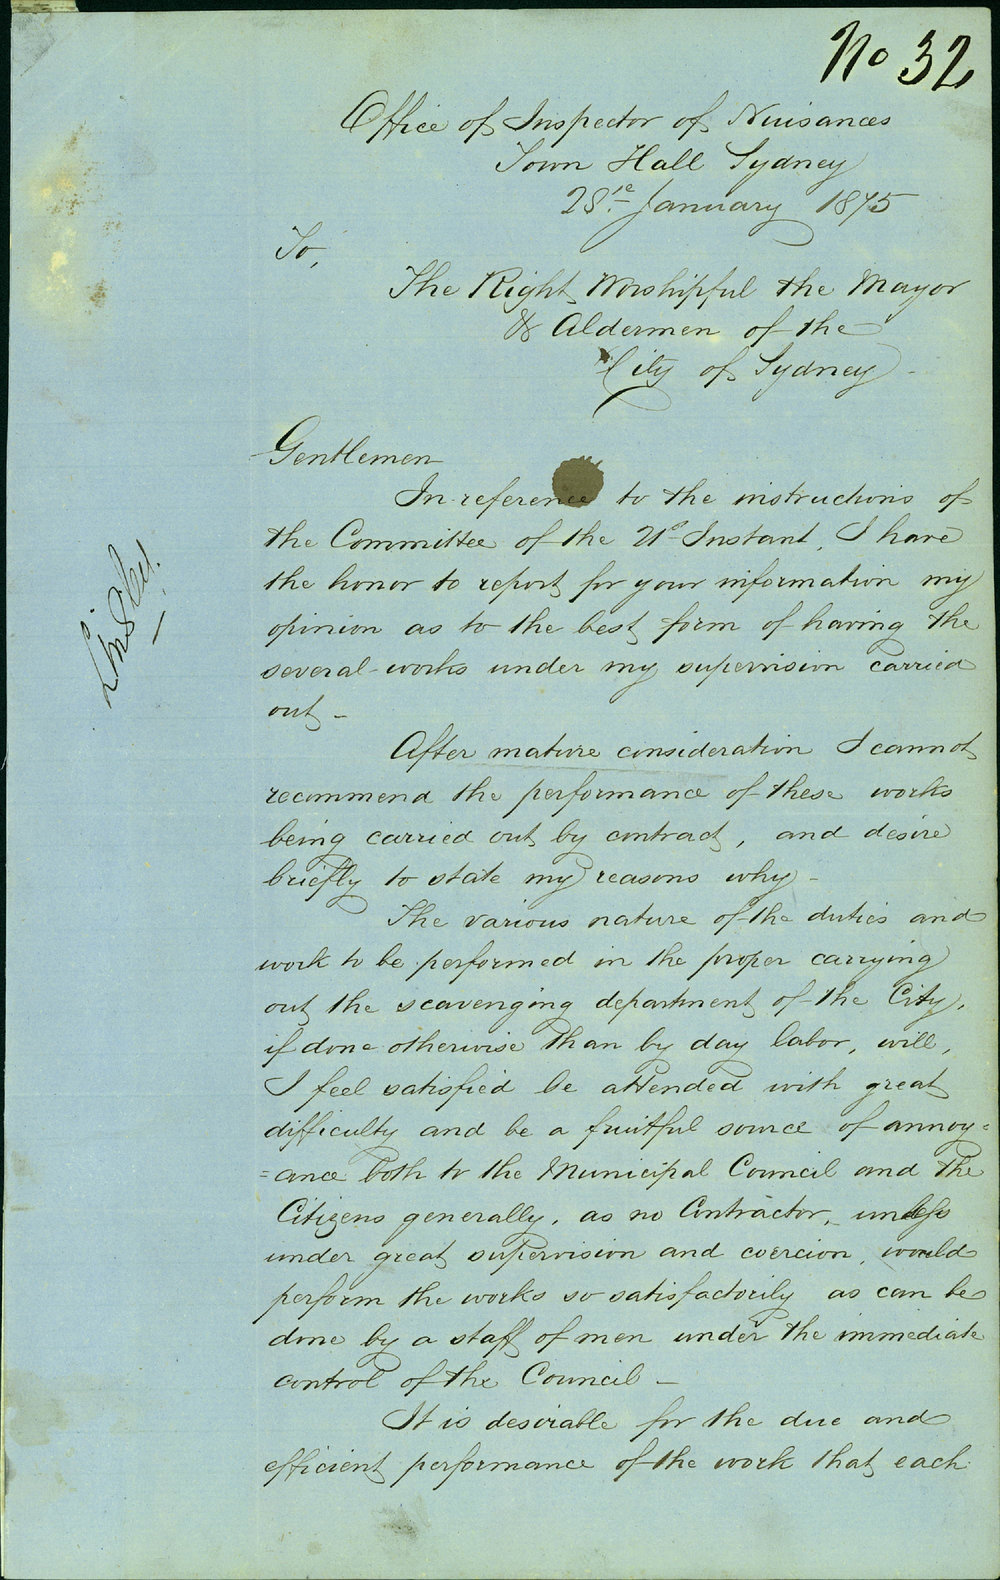 No 32
Office of Inspector of Nuisances
Town Hall Sydney
28th January 1875
To,
The Right Worshipful the Mayor
& Aldermen of the
City of Sydney
Gentlemen
In reference to the instructions of
the Committee of the 21st Instant, I have
the honor to report for your information my
opinion as to the best form of having the
several works under my supervision carried
out -
After mature consideration I cannot
recommend the performance of these works
being carried out by contract, and desire
briefly to state my reasons why -
The various nature of the duties and
work to be performed in the proper carrying
out the scavenging department of the City,
if done otherwise than by day labor, will,
I feel satisfied be attended with great
difficulty and be a fruitful source of annoy=
=ance both to the Municipal Council and the
Citizens generally, as no Contractor, unless
under great supervision and coercion, would
perform the works so satisfactorily as can be
done by a staff of men under the immediate
control of the Council -
It is desirable for the due and
efficient performance of the work that each